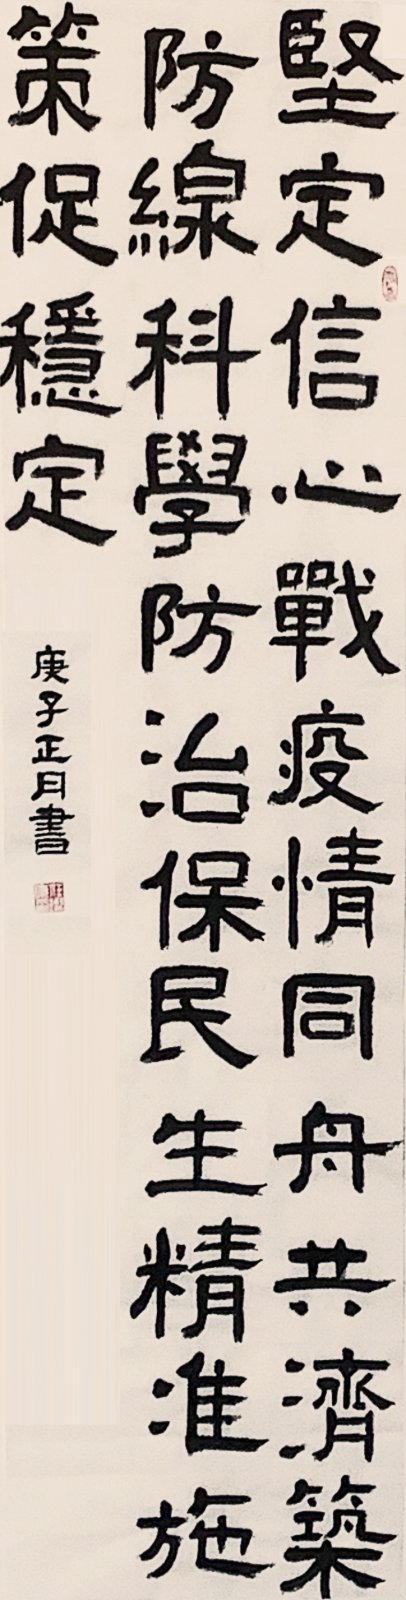 堅定信心戰疫情同舟共濟築
防線科學防治保民生精准施
策促穩定
庚子正月書